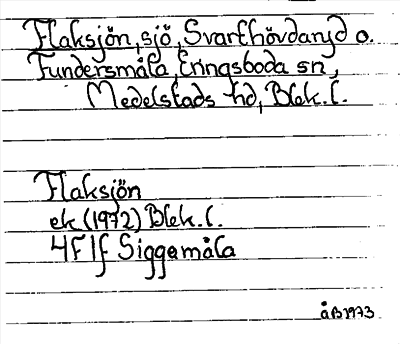 Flaksjön, sjö, Svarthövdaryd o.
Fundersmåla, Eringsboda sn,
Medelstads hd, Blek. l.
Flaksjön
ek (1972) Blek. l.
4F 1f Siggamåla
ÅB 1973